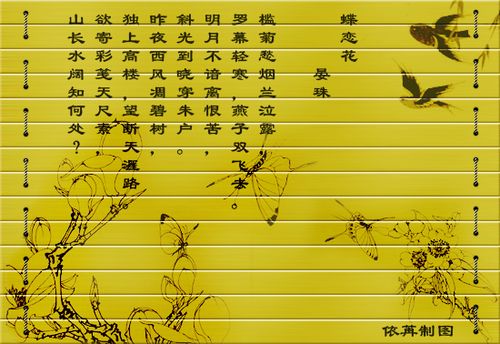 蝶恋花
晏珠
槛菊愁烟兰泣露
罗幕轻寒，燕子双飞去。
明月不谙离恨苦，
斜光到晓穿朱户。
昨夜西风凋碧树。
独上高楼，望断天涯路。
欲寄彩笺天尺素，
山长水阔知何处？
依苒制图